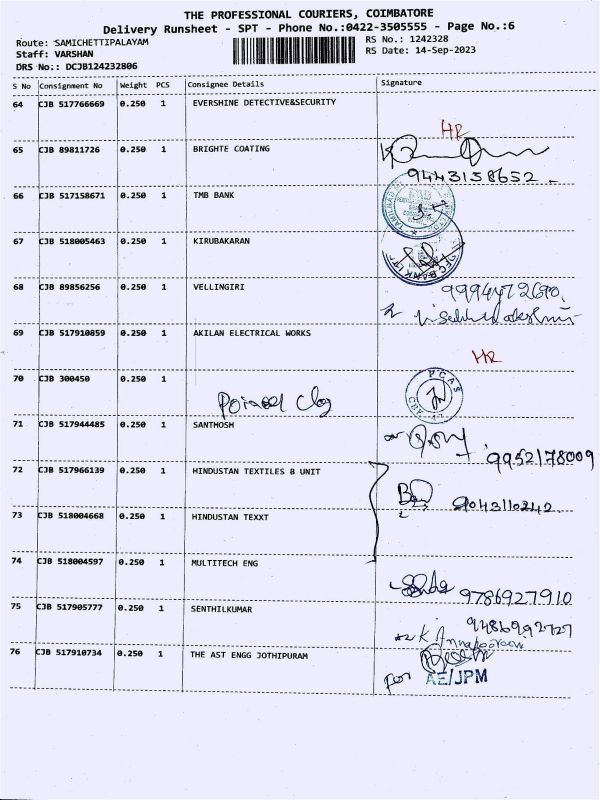 THE PROFESSIONAL COURIERS, COIMBATORE
Delivery Runsheet - SPT - Phone No.:0422-3505555 - Page No.:6
Route: SAMICHETTIPALAYAM
RS No.: 1242328
Staff: VARSHAN
RS Date: 14-Sep-2023
DRS No.: DCJB124232806
S No Consignment No Weight PCS Consignee Details Signature
64 CJB 517766669 0.250 1 EVERSHINE DETECTIVE&SECURITY
HR
65 CJB 89811726 0.250 1 BRIGHTE COATING
9443158652
66 CJB 517158671 0.250 1 TMB BANK
67 CJB 518005463 0.250 1 KIRUBAKARAN
68 CJB 89856256 0.250 1 VELLINGIRI
9994472690
69 CJB 517910859 0.250 1 AKILAN ELECTRICAL WORKS
HR
70 CJB 300450 0.250 1
PCAS
71 CJB 517944485 0.250 1 SANTHOSH
9952178009
72 CJB 517966139 0.250 1 HINDUSTAN TEXTILES B UNIT
9043110242
73 CJB 518004668 0.250 1 HINDUSTAN TEXXT
74 CJB 518004597 0.250 1 MULTITECH ENG
9786927910
75 CJB 517905777 0.250 1 SENTHILKUMAR
9486992727
76 CJB 517910734 0.250 1 THE AST ENGG JOTHIPURAM
for AE/JPM